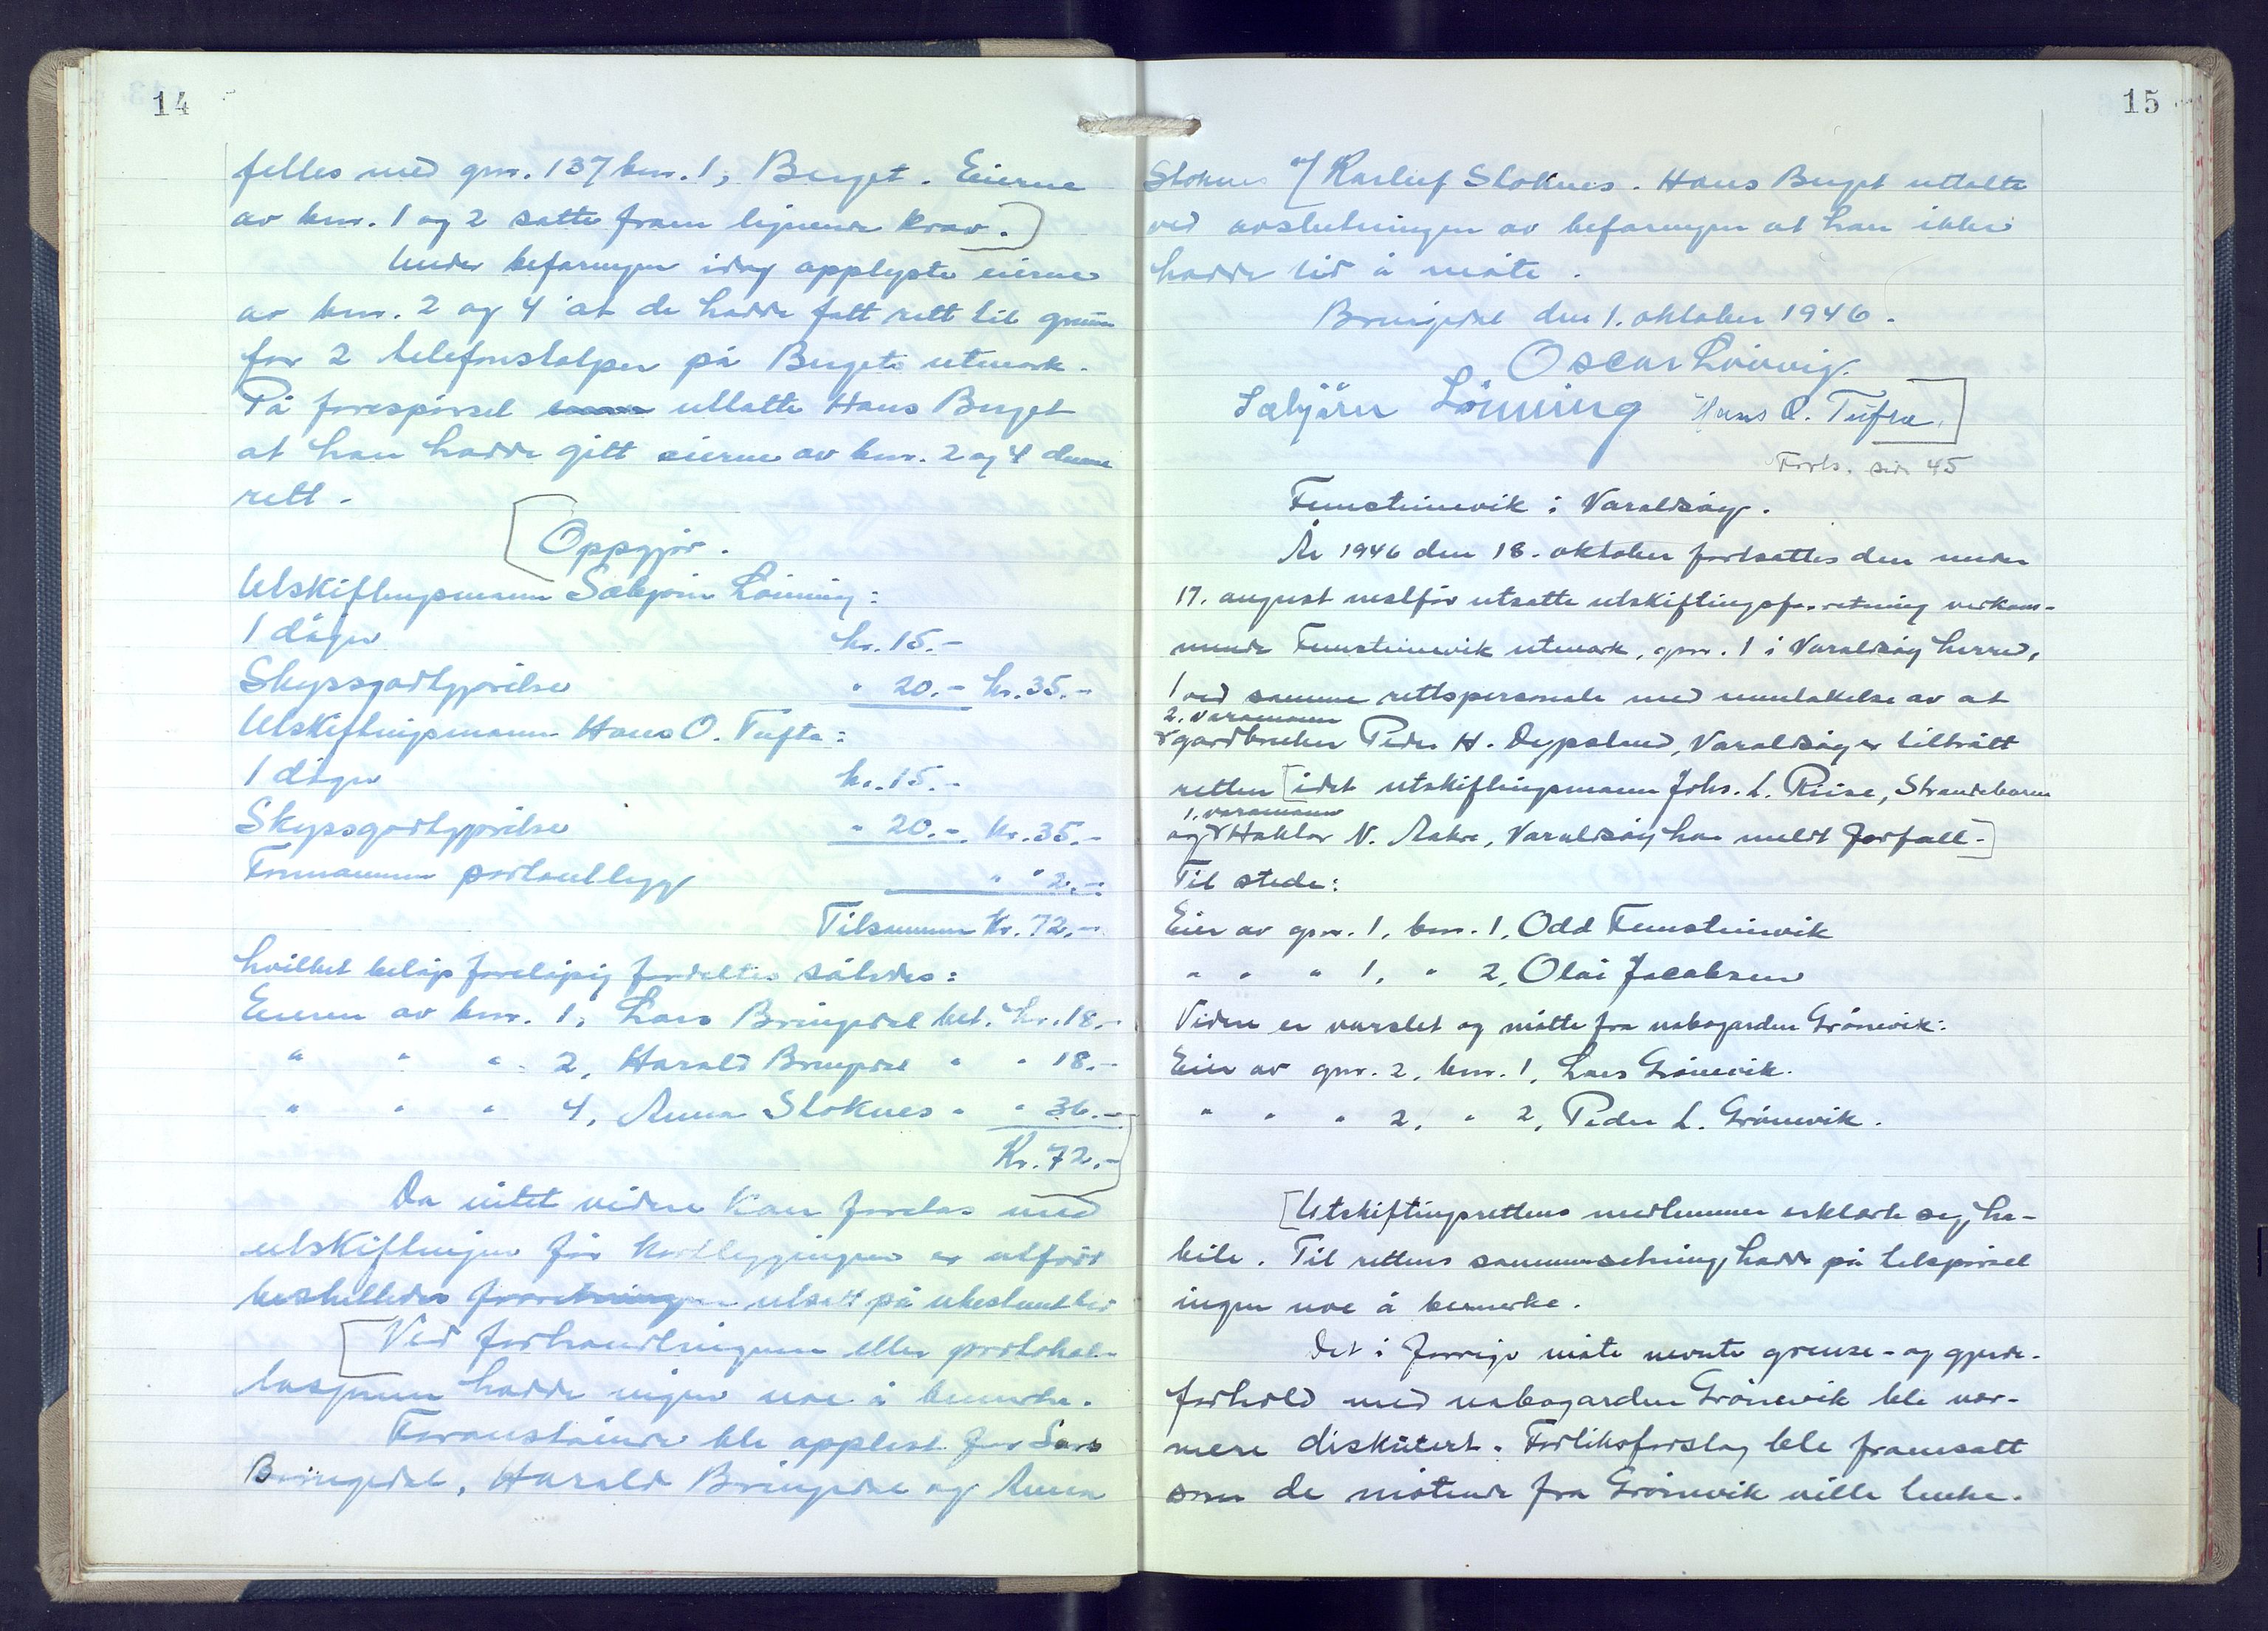 14
felles med gnr. 137 bnr. 1, Berget. Eierne
av bnr. 1 og 2 satte fram lignende krav.]
Under befaringen idag opplyste eierne
av bnr. 2 og 4 at de hadde fått rett til grunn
for 2 telefonstolper på Bergets utmark.
På forespørsel uttalte Hans Berget
at han hadde gitt eierne av bnr. 2 og 4 denne
rett.
[Oppgjør.
Utskiftingsmann Sæbjørn Lønning:
1 døgn kr. 15.-
Skyssgodtgjørelse " 20.- kr. 35.-
Utskiftingsmann Hans O. Tufta:
1 døgn kr. 15.-
Skyssgodtgjørelse " 20.- kr. 35.-
Formannen portoutlegg " " 2.-
Tilsammen kr. 72.-
hvilket beløp foreløpig fordeltes således:
Eieren av bnr. 1, Lars Bringedal bet. kr. 18.-
" " " 2, Harald Bringedal " " 18.-
" " " 4, Anna Stoknes " " 36.-
Kr. 72.-]
Da intet videre kan foretas med
utskiftingen før kartleggingen er utført
besluttedes forretningen utsatt på ubestemt tid
[Ved forhandlingene eller protokol-
lasjonen hadde ingen noe å bemerke.
Foranstående ble opplest for Lars
Bringedal, Harald Bringedal og Anna
15
Stoknes v/ Karluf Stoknes. Hans Berget uttalte
ved avslutningen av befaringen at han ikke
hadde tid å møte.
Bringedal den 1. oktober 1946.
Oscar Lovvig.
Sæbjörn Lönning Hans O. Tufta.]
Forts. side 45
Femsteinevik i Varaldsøy.
År 1946 den 18. oktober fortsattes den under
17. august nestfør utsatte utskiftingsforretning vedkom-
mende Femsteinevik utmark, gnr. 1 i Varaldsøy herred,
ved samme rettspersonale med unntakelse av at
2. varamann
gardbruker Peder H. Dypsland, Varaldsøy er tiltrått
retten [idet utskiftingsmann Johs. L. Riise, Strandebarm
1. varamann
og Haktor N. Aakre, Varaldsøy har meldt forfall.]
Til stede:
Eier av gnr. 1, bnr. 1, Odd Femsteinevik
" " " 1, " 2, Olai Jacobsen
Videre er varslet og møtte fra nabogarden Grönevik:
Eier av gnr. 2, bnr. 1, Lars Grönevik.
" " " 2, " 2, Peder L. Grönevik.
[Utskiftingsrettens medlemmer erklærte seg ha-
bile. Til rettens sammensetning hadde på tilspørsel
ingen noe å bemerke.
Det i forrige møte nevnte grense- og gjerde-
forhold med nabogarden Grönevik ble nær-
mere diskutert. Forliksforslag ble framsatt
som de møtende fra Grönevik ville tenke.